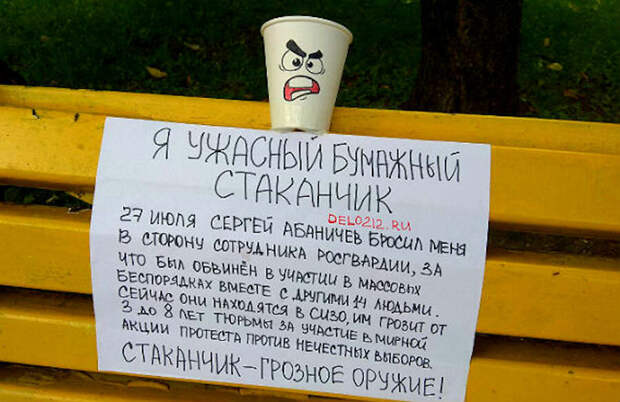 Я УЖАСНЫЙ БУМАЖНЫЙ
СТАКАНЧИК
DELO212.RU
27 ИЮЛЯ СЕРГЕЙ АБАНИЧЕВ БРОСИЛ МЕНЯ
В СТОРОНУ СОТРУДНИКА РОСГВАРДИИ, ЗА
ЧТО БЫЛ ОБВИНЁН В УЧАСТИИ В МАССОВЫХ
БЕСПОРЯДКАХ ВМЕСТЕ С ДРУГИМИ 14 ЛЮДЬМИ.
СЕЙЧАС ОНИ НАХОДЯТСЯ В СИЗО, ИМ ГРОЗИТ ОТ
3 ДО 8 ЛЕТ ТЮРЬМЫ ЗА УЧАСТИЕ В МИРНОЙ
АКЦИИ ПРОТЕСТА ПРОТИВ НЕЧЕСТНЫХ ВЫБОРОВ.
СТАКАНЧИК – ГРОЗНОЕ ОРУЖИЕ!